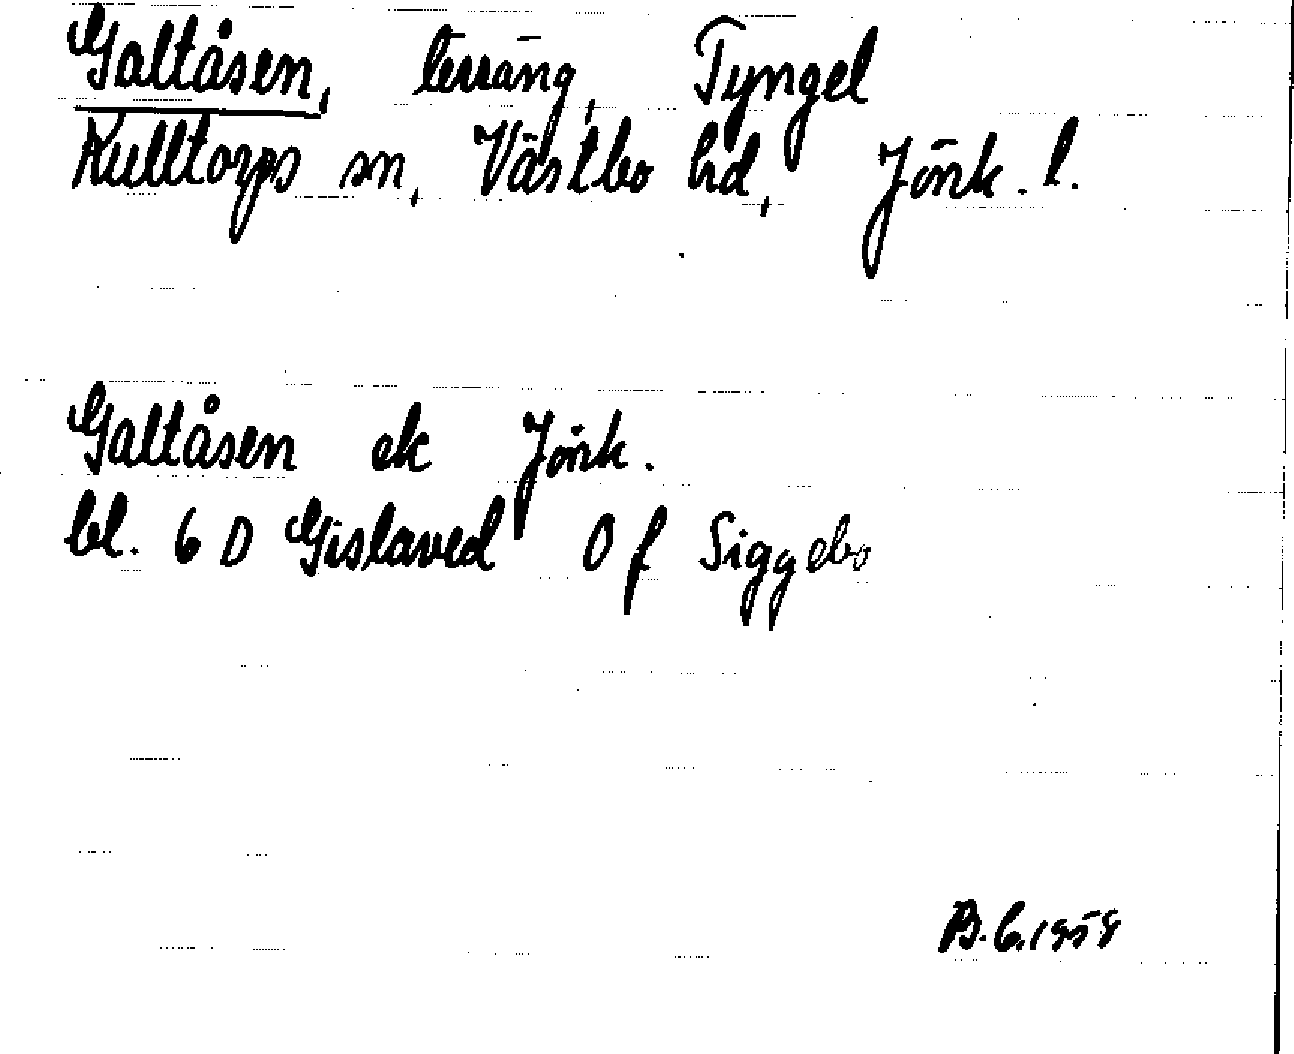 Galtåsen, terräng, Tyngel
Kulltorps sn, Västbo hd, Jönk. l.
Galtåsen ek Jönk.
bl. 6 D Gislaved 0 f Siggebo
B.G. 1958